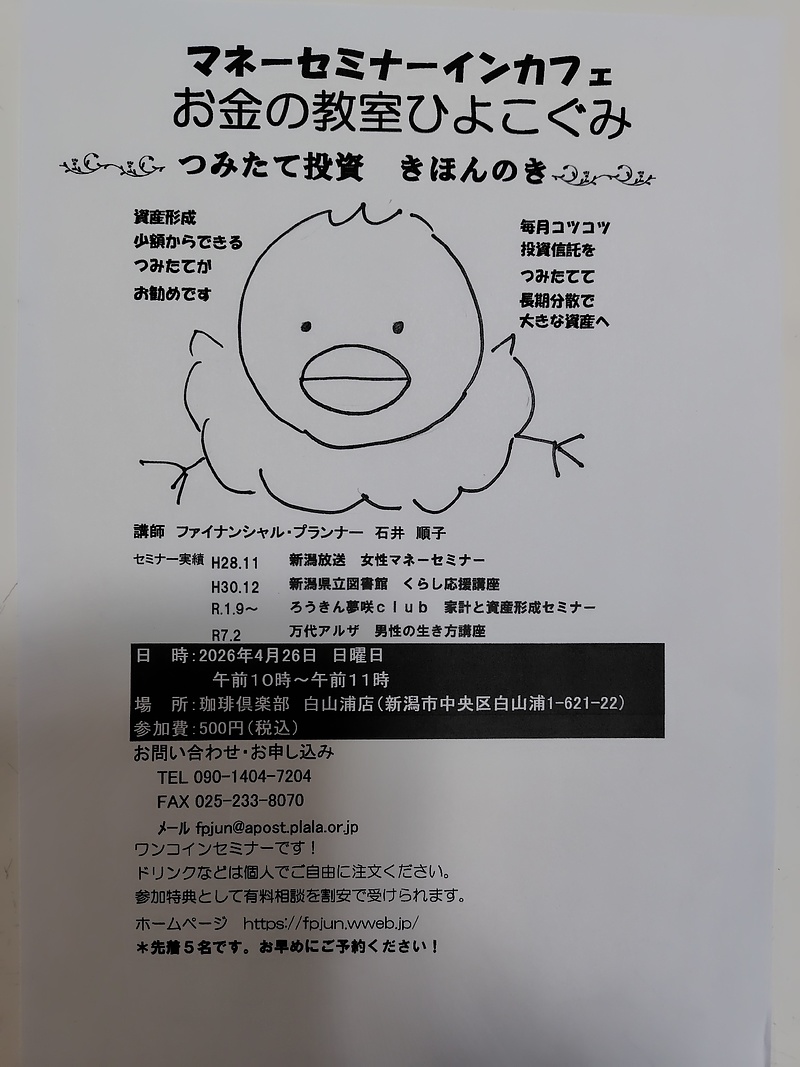 マネーセミナーインカフェ
お金の教室ひよこぐみ
つみたて投資　きほんのき
資産形成
少額からできる
つみたてが
お勧めです
毎月コツコツ
投資信託を
つみたてて
長期分散で
大きな資産へ
講師　ファイナンシャル・プランナー　石井　順子
セミナー実績　H28.11　新潟放送　女性マネーセミナー
H30.12　新潟県立図書館　くらし応援講座
R.1.9～　ろうきん夢咲ｃｌｕｂ　家計と資産形成セミナー
R7.2　万代アルザ　男性の生き方講座
日　時：2026年4月26日　日曜日
午前１０時～午前１１時
場　所：珈琲倶楽部　白山浦店（新潟市中央区白山浦1-621-22）
参加費：500円（税込）
お問い合わせ・お申し込み
TEL 090-1404-7204
FAX 025-233-8070
メール fpjun@apost.plala.or.jp
ワンコインセミナーです！
ドリンクなどは個人でご自由に注文ください。
参加特典として有料相談を割安で受けられます。
ホームページ　https://fpjun.wweb.jp/
＊先着５名です。お早めにご予約ください！